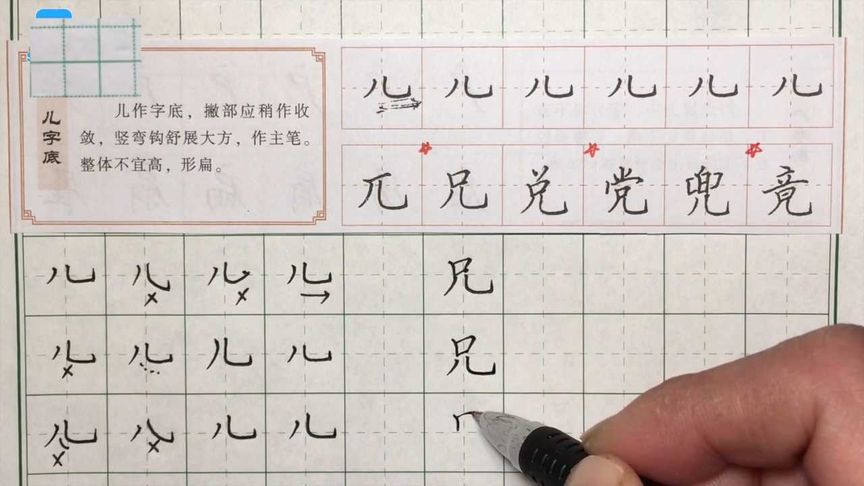 儿字底
儿作字底，撇部应稍作收
敛，竖弯钩舒展大方，作主笔。
整体不宜高，形扁。
儿 儿 儿 儿 儿 儿
兀 兄 兑 党 兜 竟
儿 儿 儿 儿 兄
儿 儿 儿 儿 兄
儿 儿 儿 儿